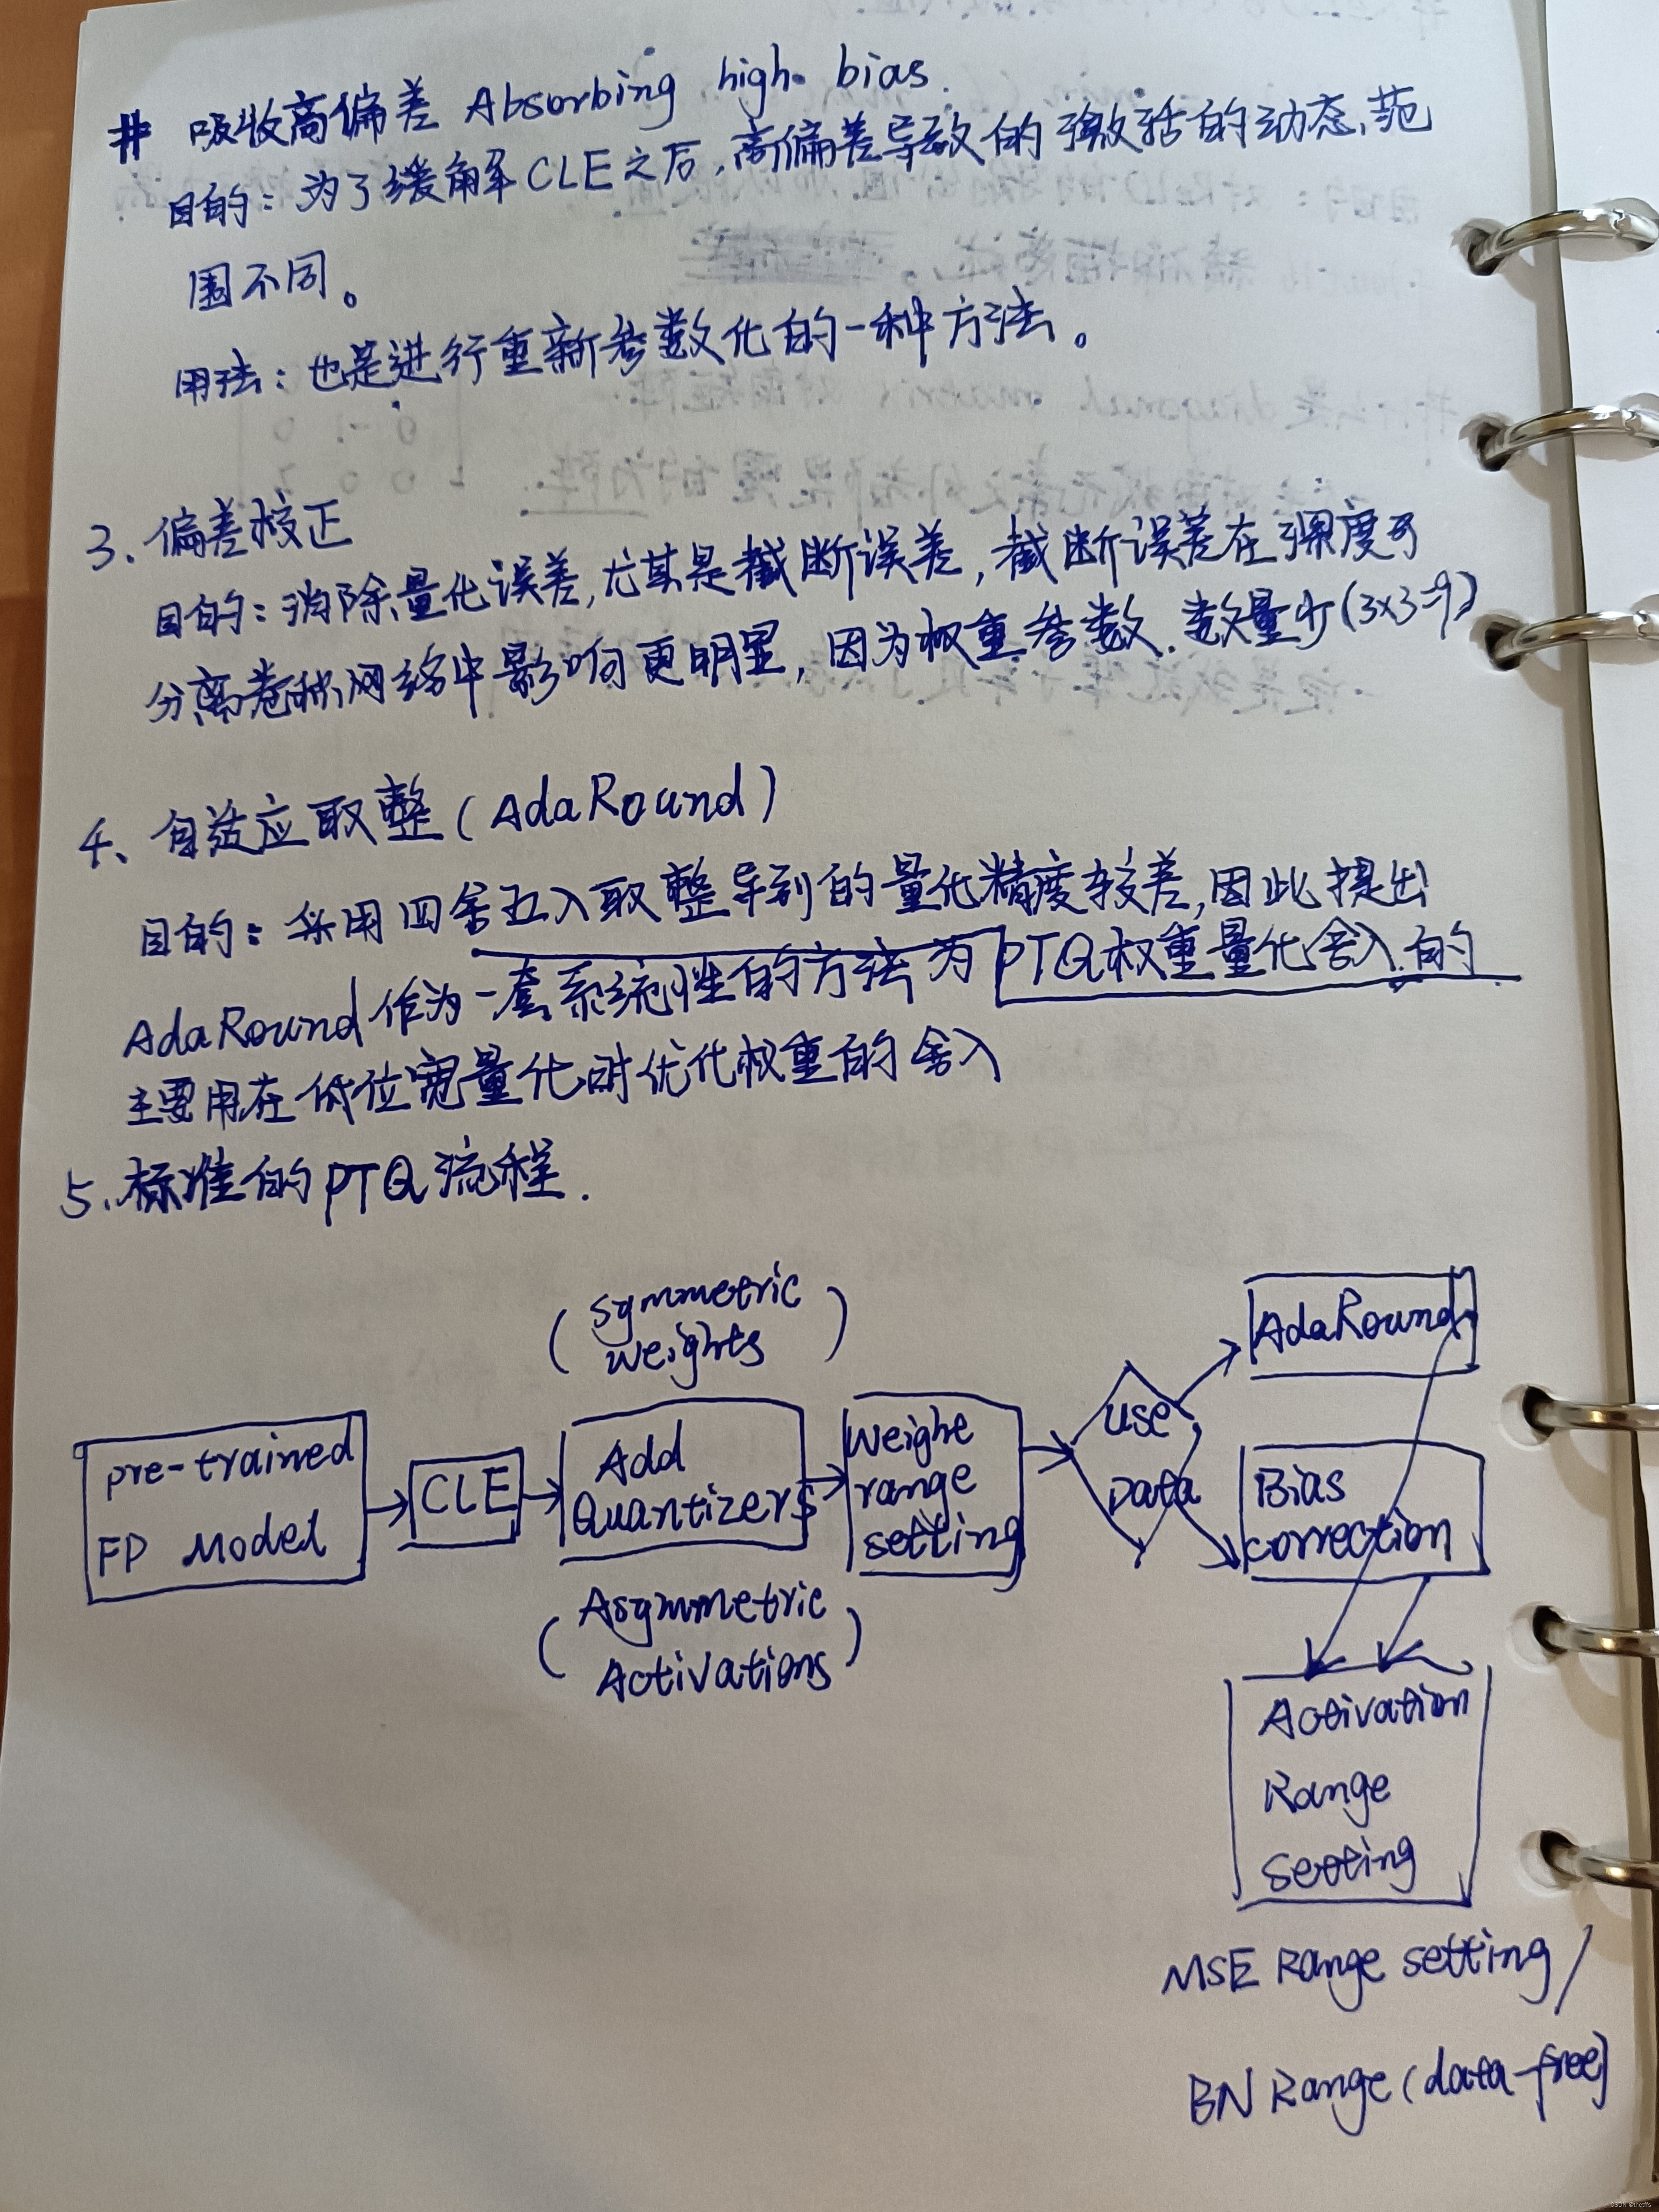 # 吸收高偏差 Absorbing high bias.
目的：为了缓解CLE之后，高偏差导致的激活的动态范
围不同。
用法：也是进行重新参数化的一种方法。
3. 偏差校正
目的：消除量化误差，尤其是截断误差，截断误差在深度可
分离卷积网络中影响更明显，因为权重参数数量少(3x3=9)
4、自适应取整(AdaRound)
目的：采用四舍五入取整导到的量化精度较差，因此提出
AdaRound作为一套系统性的方法为PTQ权重量化舍入的
主要用在低位宽量化时优化权重的舍入
5. 标准的PTQ流程.
(Symmetric
weights)
pre-trained
FP Model
CLE
Add
Quantizers
(Asymmetric
Activations)
Weighe
range
setting
use
Data
AdaRound
Bias
correction
Activation
Range
Setting
MSE Range setting /
BN Range (data-free)